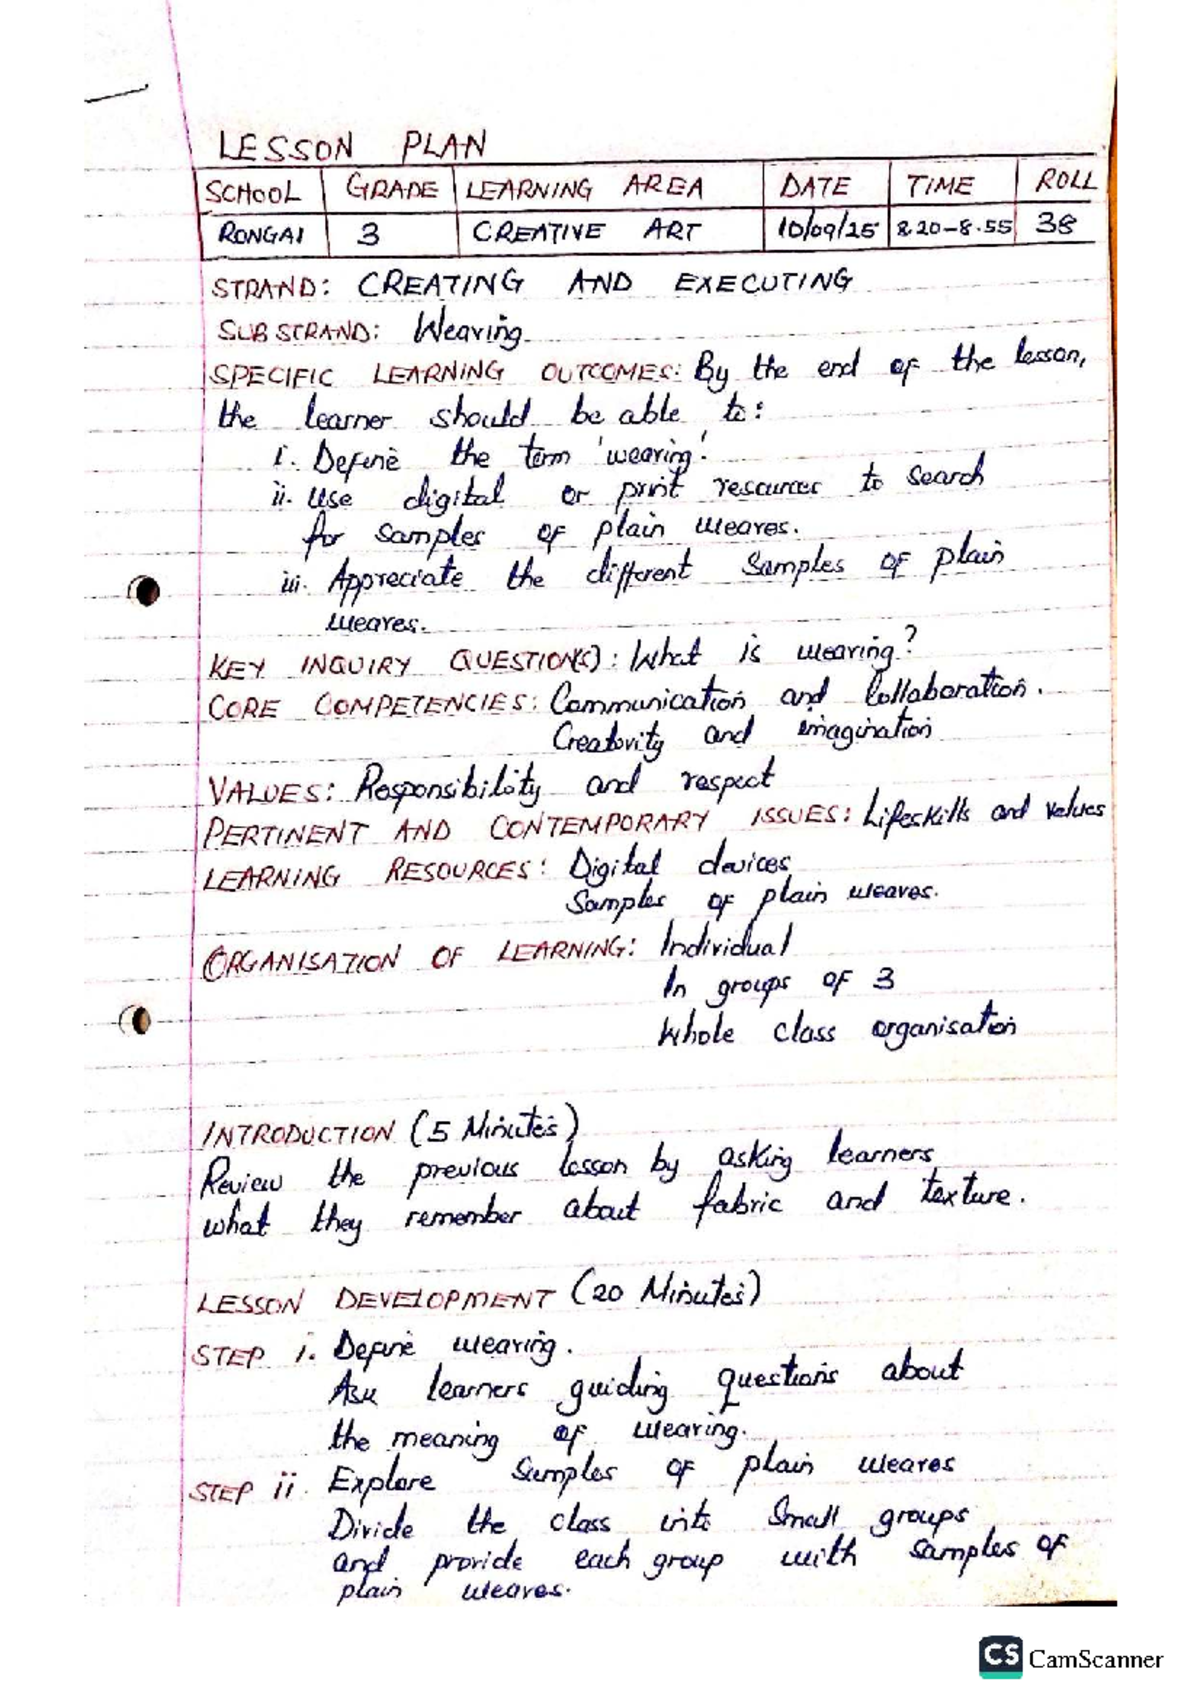 LESSON PLAN
SCHOOL GRADE LEARNING AREA DATE TIME ROLL
RONGAI 3 CREATIVE ART 10/09/25 8.20-8.55 38
STRAND: CREATING AND EXECUTING
SUB STRAND: Weaving
SPECIFIC LEARNING OUTCOMES: By the end of the lesson,
the learner should be able to:
i. Define the term 'weaving'.
ii. Use digital or print resources to search
for samples of plain weaves.
iii. Appreciate the different samples of plain
weaves.
KEY INQUIRY QUESTION(S): What is weaving?
CORE COMPETENCIES: Communication and Collaboration.
Creativity and imagination
VALUES: Responsibility and respect
PERTINENT AND CONTEMPORARY ISSUES: Lifeskills and values
LEARNING RESOURCES: Digital devices
Samples of plain weaves.
ORGANISATION OF LEARNING: Individual
In groups of 3
Whole class organisation
INTRODUCTION (5 Minutes)
Review the previous lesson by asking learners
what they remember about fabric and texture.
LESSON DEVELOPMENT (20 Minutes)
STEP i. Define weaving.
Ask learners guiding questions about
the meaning of weaving.
STEP ii. Explore samples of plain weaves
Divide the class into small groups
and provide each group with samples of
plain weaves.
CS CamScanner